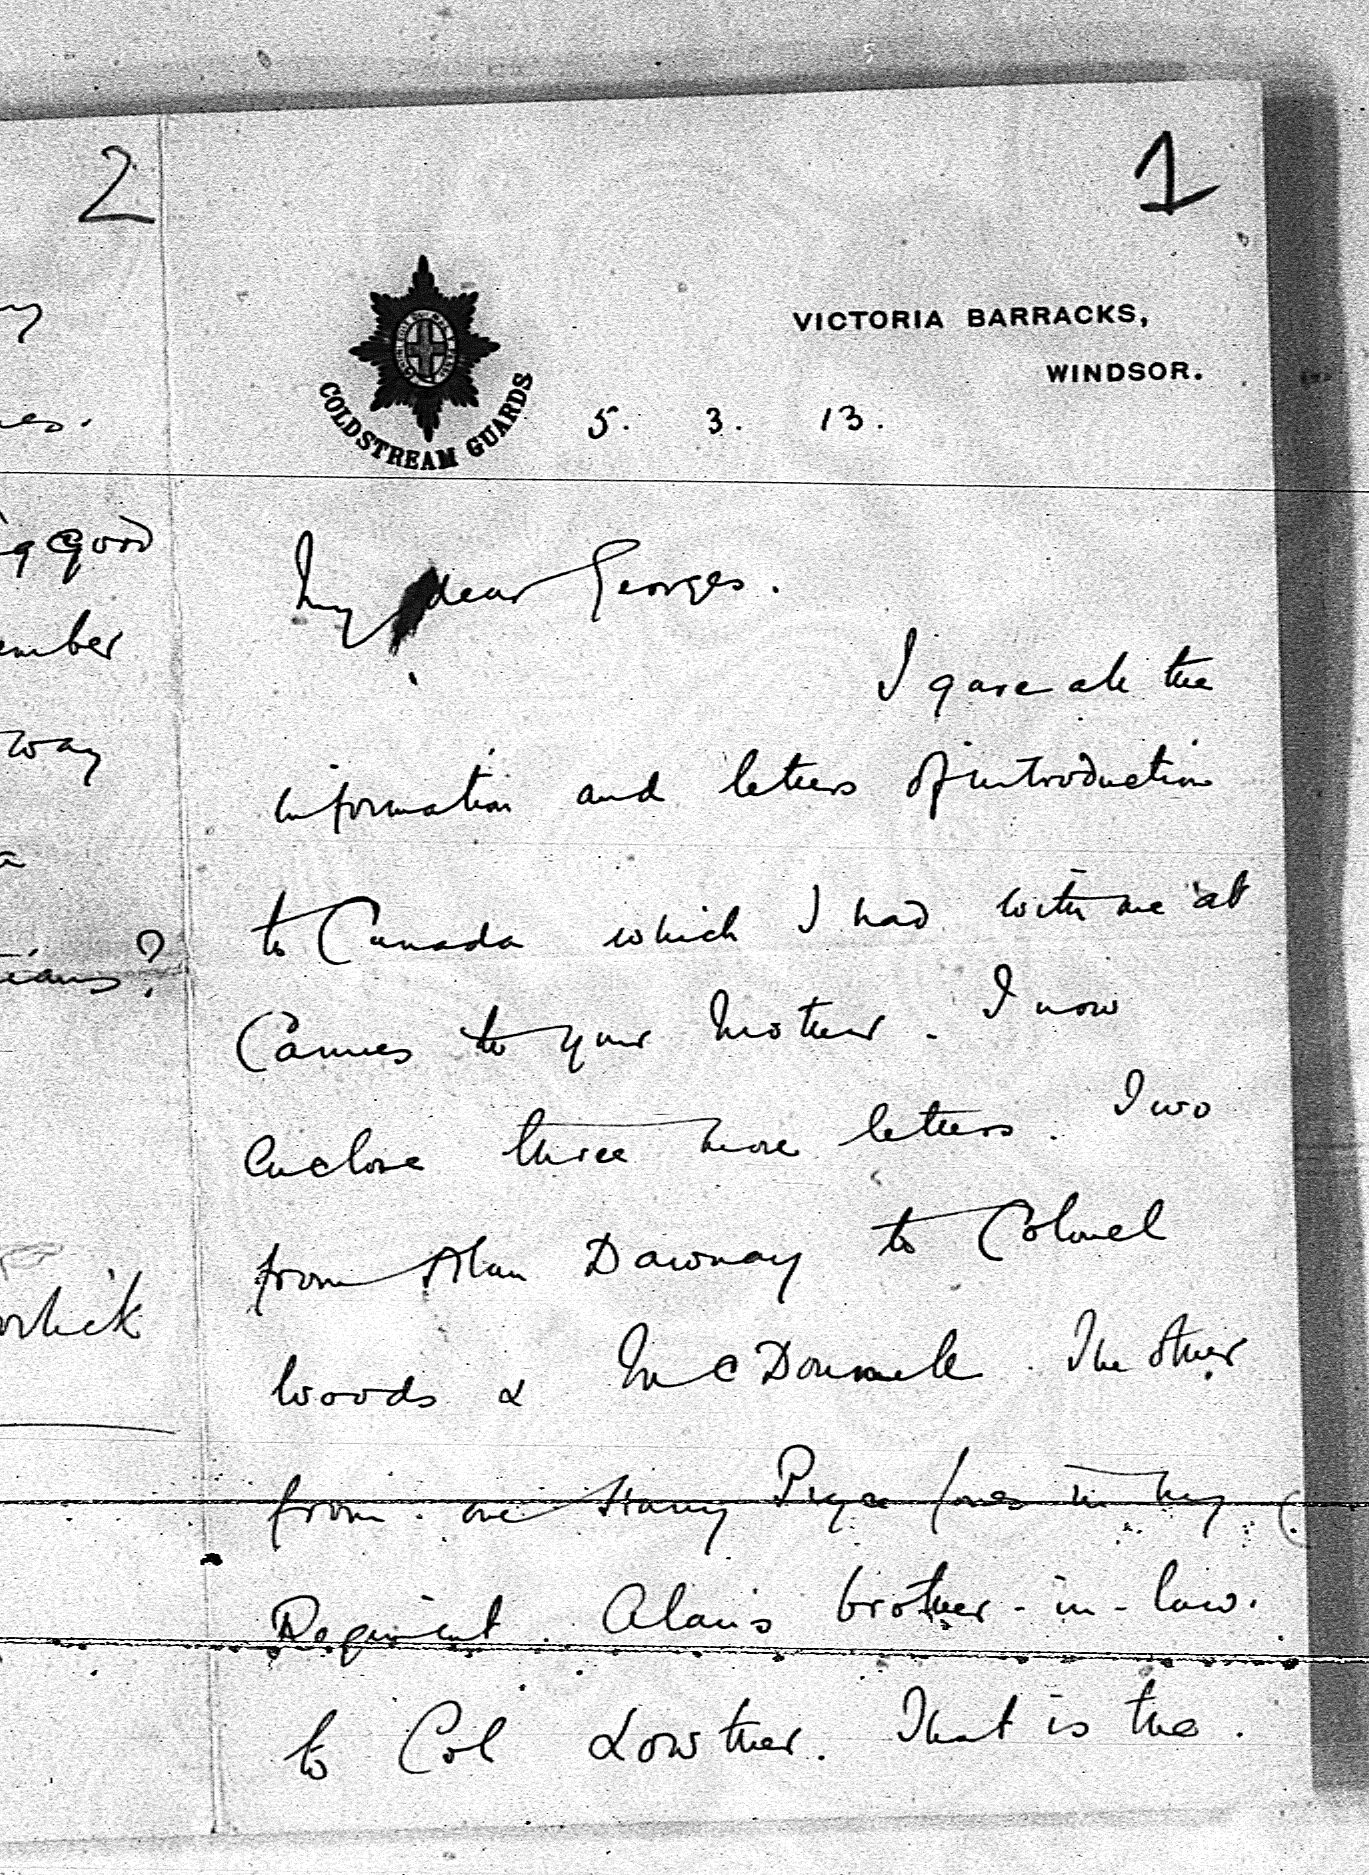 2
1
VICTORIA BARRACKS,
WINDSOR.
COLDSTREAM GUARDS
5. 3. 13.
My dear Georges.
I gave all the
information and letters of introduction
to Canada which I had with me at
Cannes to your Mother. I now
enclose three more letters. Two
from Alan Dawnay to Colonel
Woods & McDonnell. The other
from one Harry Pryce Jones in my
Regiment. Alan's brother-in-law.
to Col Lowther. That is the.
good
way